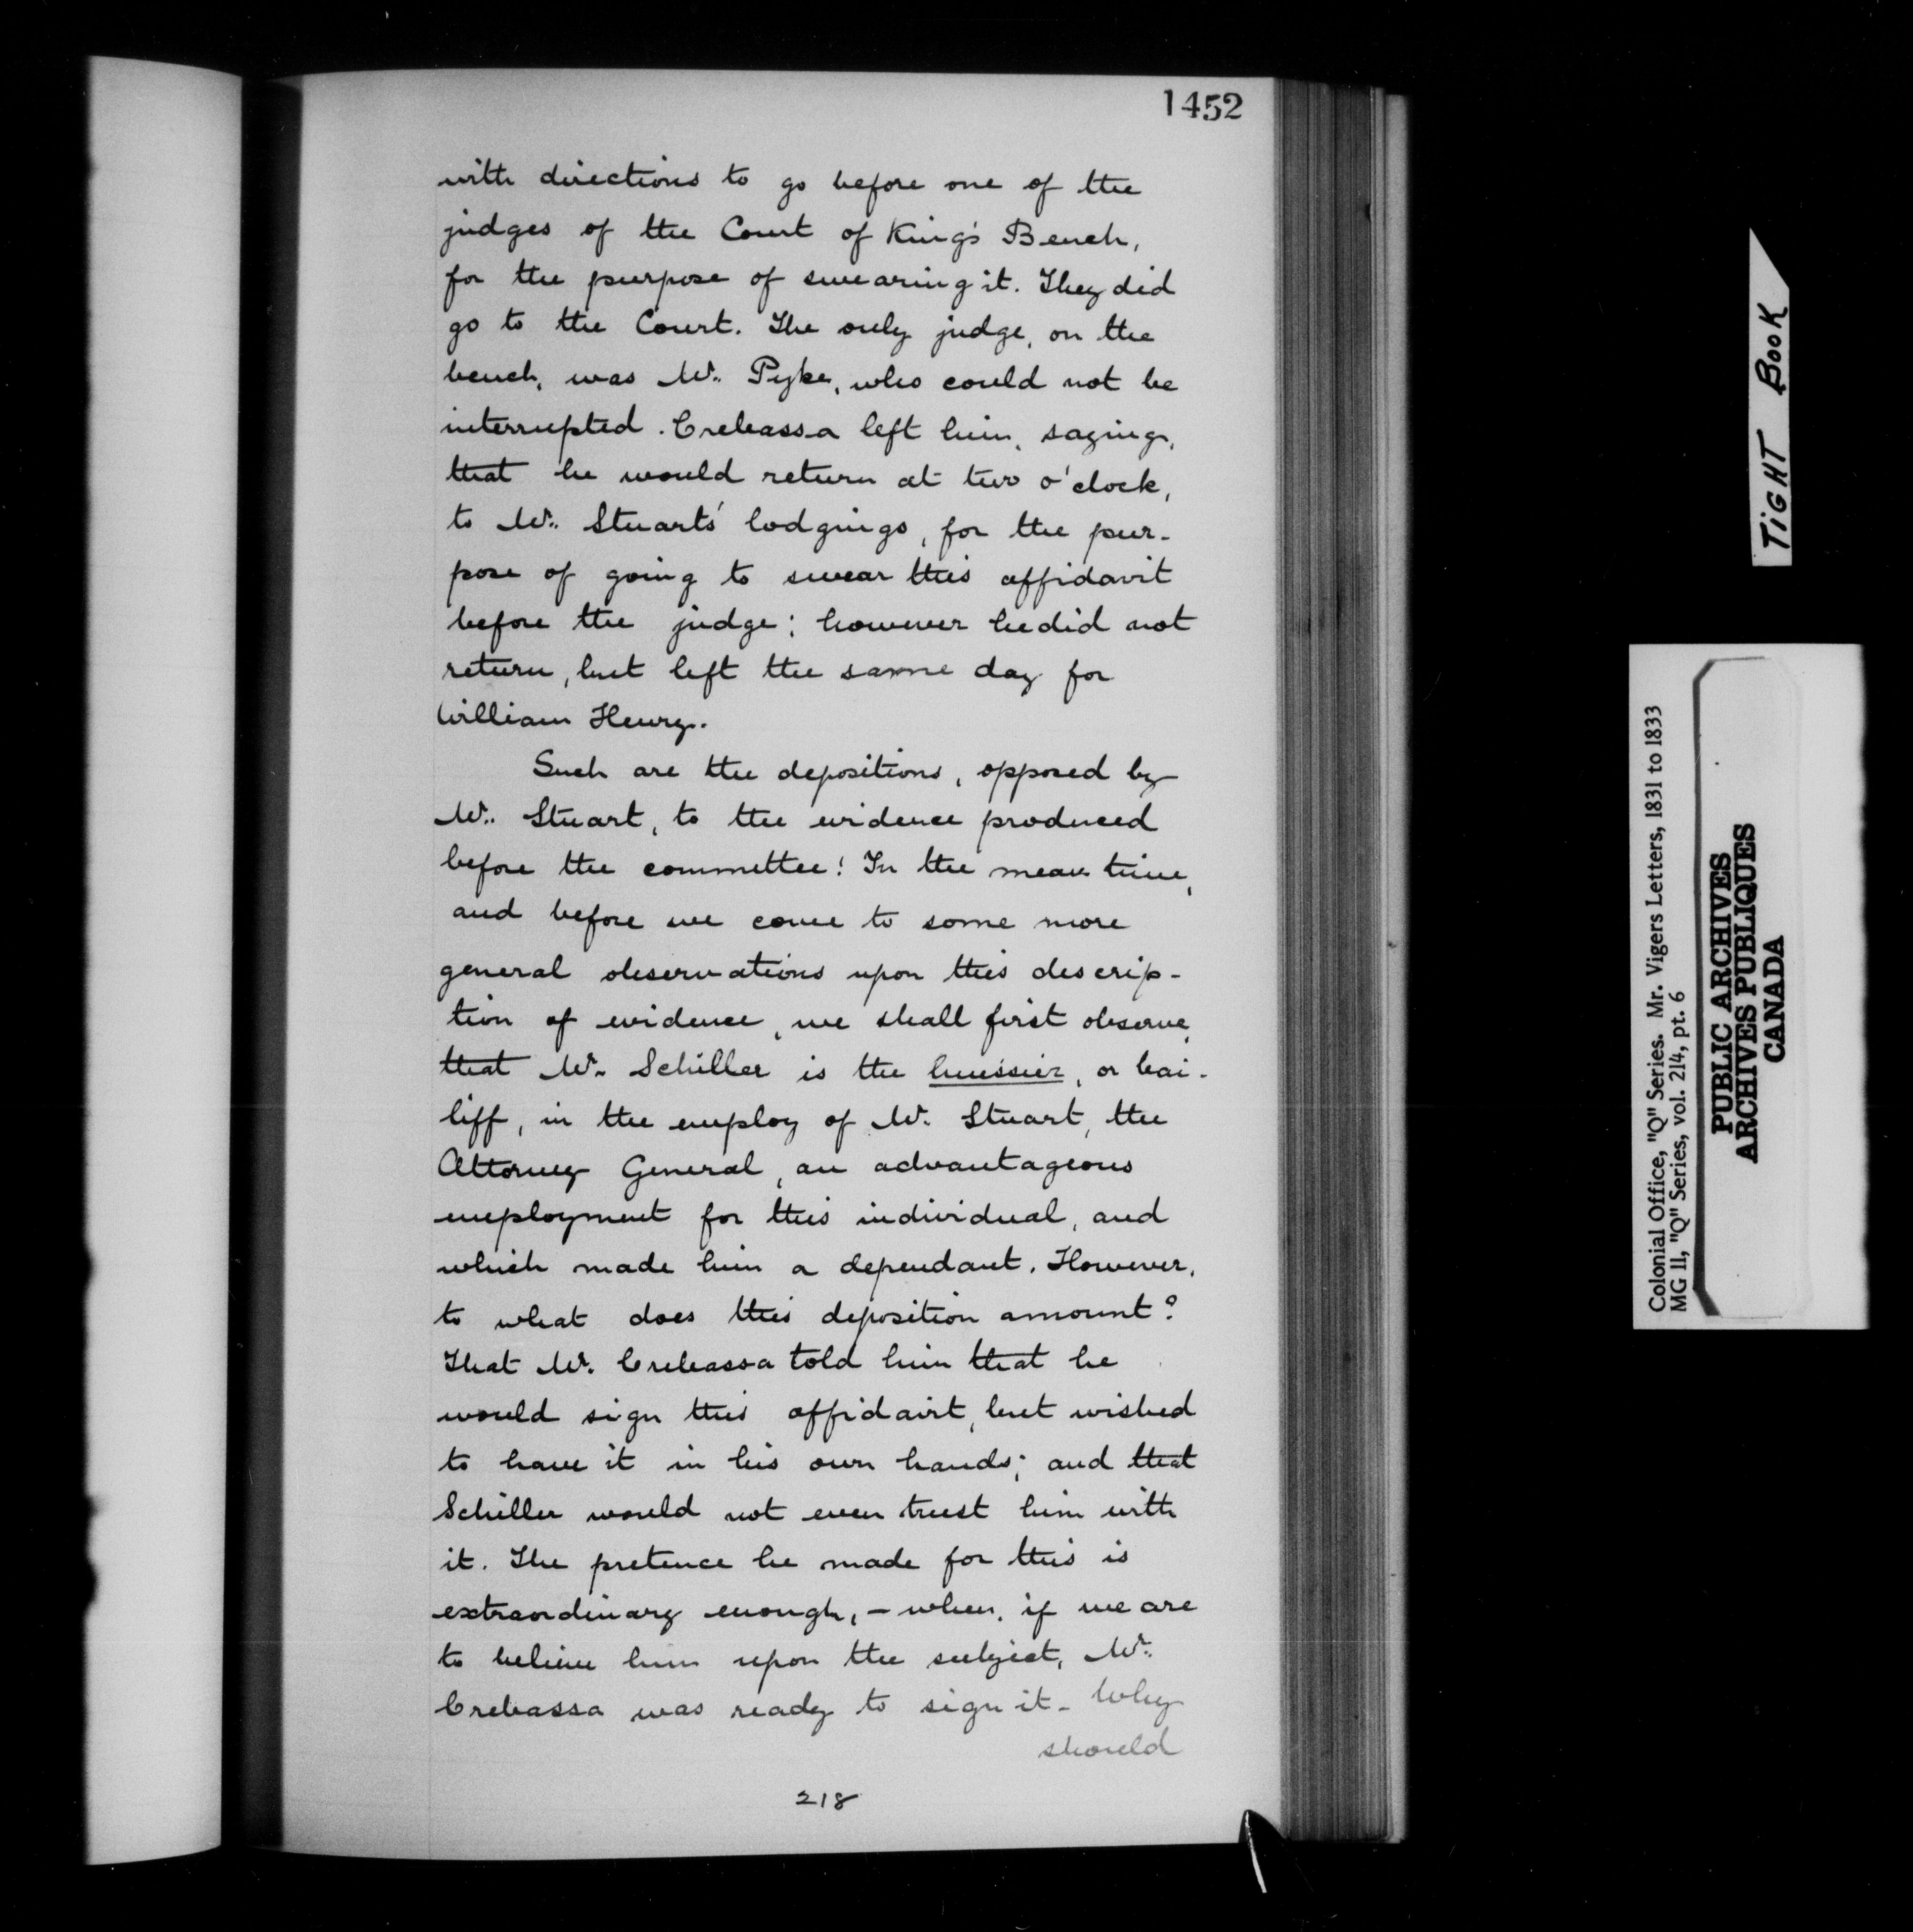 1452
with directions to go before one of the
judges of the Court of King's Bench,
for the purpose of swearing it. They did
go to the Court. The only judge, on the
bench, was Mr. Pyke, who could not be
interrupted. Crebassa left him, saying,
that he would return at two o'clock,
to Mr. Stuarts' lodgings, for the pur-
pose of going to swear this affidavit
before the judge; however he did not
return, but left the same day for
William Henry.
Such are the depositions, opposed by
Mr. Stuart, to the evidence produced
before the committee! In the mean time,
and before we come to some more
general observations upon this descrip-
tion of evidence, we shall first observe,
that Mr. Schiller is the huissier, or bai-
liff, in the employ of Mr. Stuart, the
Attorney General, an advantageous
employment for this individual, and
which made him a dependant. However,
to what does this deposition amount?
That Mr. Crebassa told him that he
would sign this affidavit, but wished
to have it in his own hands; and that
Schiller would not even trust him with
it. The pretence he made for this is
extraordinary enough, - when, if we are
to believe him upon the subject, Mr.
Crebassa was ready to sign it - Why
should
218
TIGHT BOOK
Colonial Office, "Q" Series. Mr. Vigers Letters, 1831 to 1833
MG 11, "Q" Series, vol. 214, pt. 6
PUBLIC ARCHIVES
ARCHIVES PUBLIQUES
CANADA